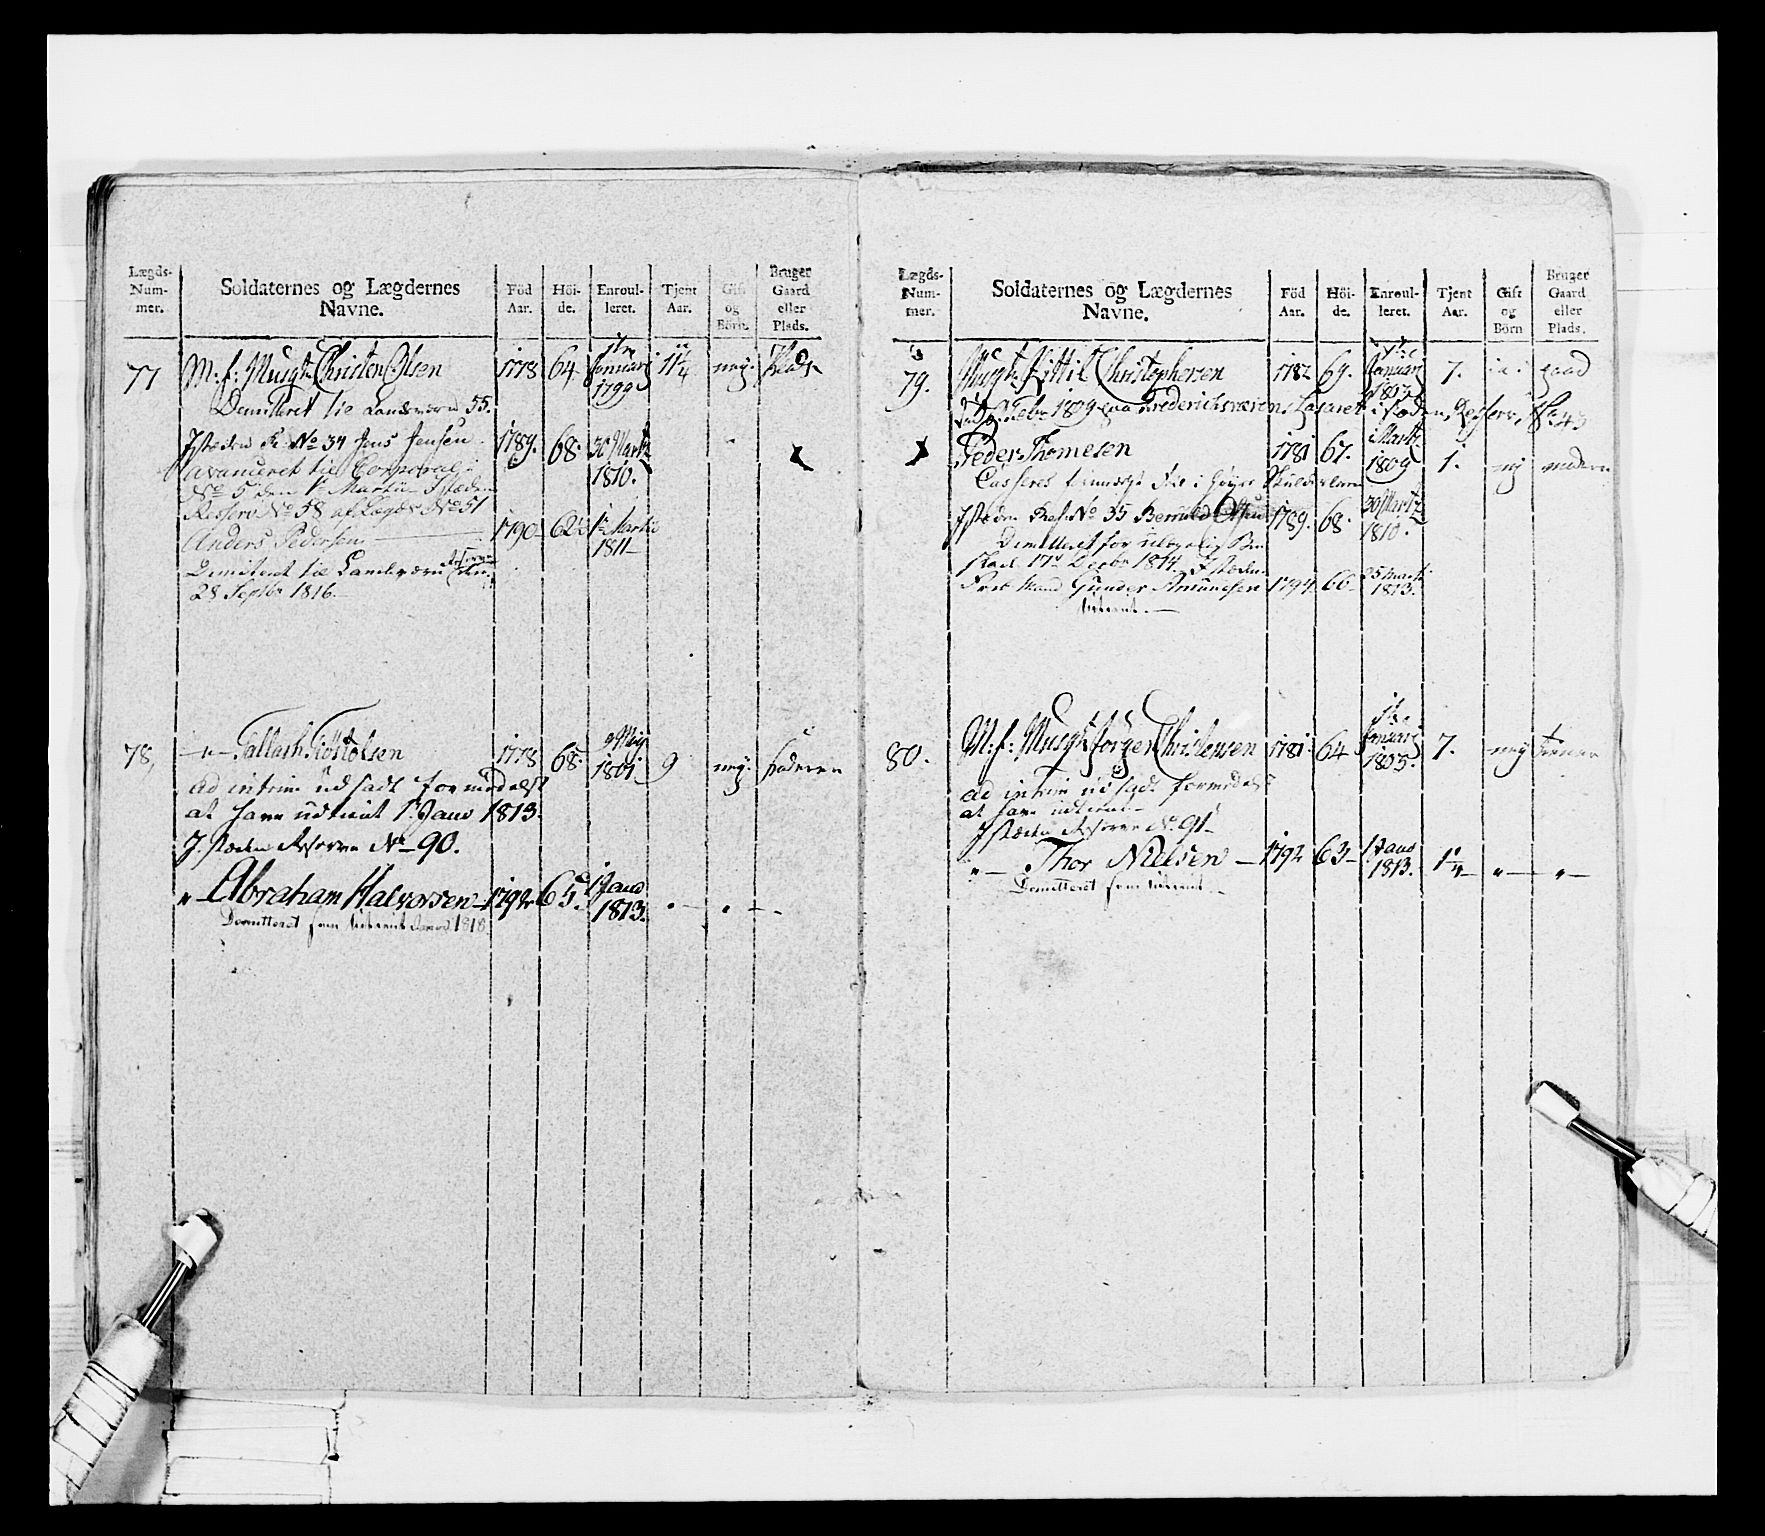 Lægds-Num-mer. Soldaternes og Lægdernes Navne. Föd Aar. Höi-de. Enroul-leret. Tjent Aar. Gift og Börn. Bruger Gaard eller Plads.
77 M: f: Musqt Christen Olsen 1778 64 1te Januari 1799 11 1/4 nej. Plads
Demitteret til Landeværn 55.
Jsteden R. No 34 Jens Jensen 1789. 68. 30 Martz 1810.
avanceret til Corporal
No 5 den 1te Martii Jsteden
Reserv No 58 af Lægds No 51
Anders Pedersen 1790 62 1/2 1te Martii 1811
Demiteret til Landeværn
28 Septbr 1816.
78, Tallach 1778 68. Maij 1801 9 nej. faderen
ad intrim udsadt formedelst
at have udtient 1te Janv 1813.
J steden Reserve No 90.
" Abraham Halvorsen 1792 65. 1 Janv 1813. " "
Demitteret som udtient Janv. 1818.
Lægds-Num-mer. Soldaternes og Lægdernes Navne. Föd Aar. Höi-de. Enroul-leret. Tjent Aar. Gift og Börn Bruger Gaard eller Plads.
79. Musqt Kittil Christophersen 1782 69. Januari 1803 7. ja. gaad
Febr 1809 paa Frederichsværens Lazaret i steden Reserv, No 43
Peder Thomesen 1781 67. Martz 1809 1. nej
Casseres
Jsteden Res. No 35 Berruld Olsen 1789. 68. 30 Martz 1810.
Demitteret for
17de Decbr 1814. Jsteden
Gunder Amundsen 1794 66 25 Martz 1813.
udtient.
80. M: f: Musqt Jörgen Christensen 1781 64 1te Januari 1803. 7. nej tienner
ad intrim udsadt formedelst
at have udtient
J steden Reserve No 91
" Thor Nielsen 1792 63 1 Janv 1813. 1 1/4 " "
Demitteret som udtient.